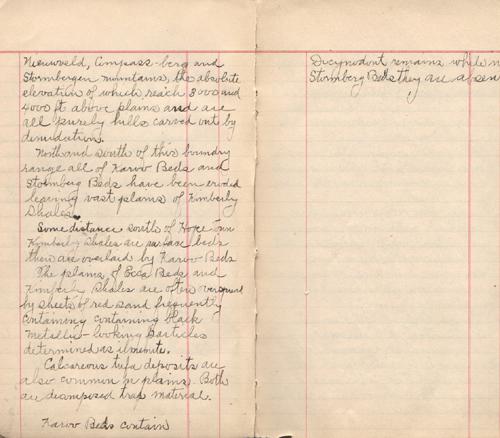 Nieuwveld, Compass-berg and
Stormbergen mountains, the absolute
elevation of which reach 3000 and
4000 ft above plains and are
all purely hills carved out by
denudation.
North and south of this boundry
range all of Karoo Beds and
Stormberg Beds have been eroded
leaving vast plains of Kimberly
Shales.
Some distance south of Hope Town
Kimberly Shales are surface beds
then are overlaid by Karoo Beds
The plains of Ecca Beds and
Kimberly Shales are often overspread
by sheets of red sand frequently
containing containing black
metallic-looking particles
determined as ilmenite.
Calcareous tufa deposits are
also common in plains. Both
are decomposed trap material.
Karoo Beds contain
Dicynodont remains while
Stormberg Beds they are